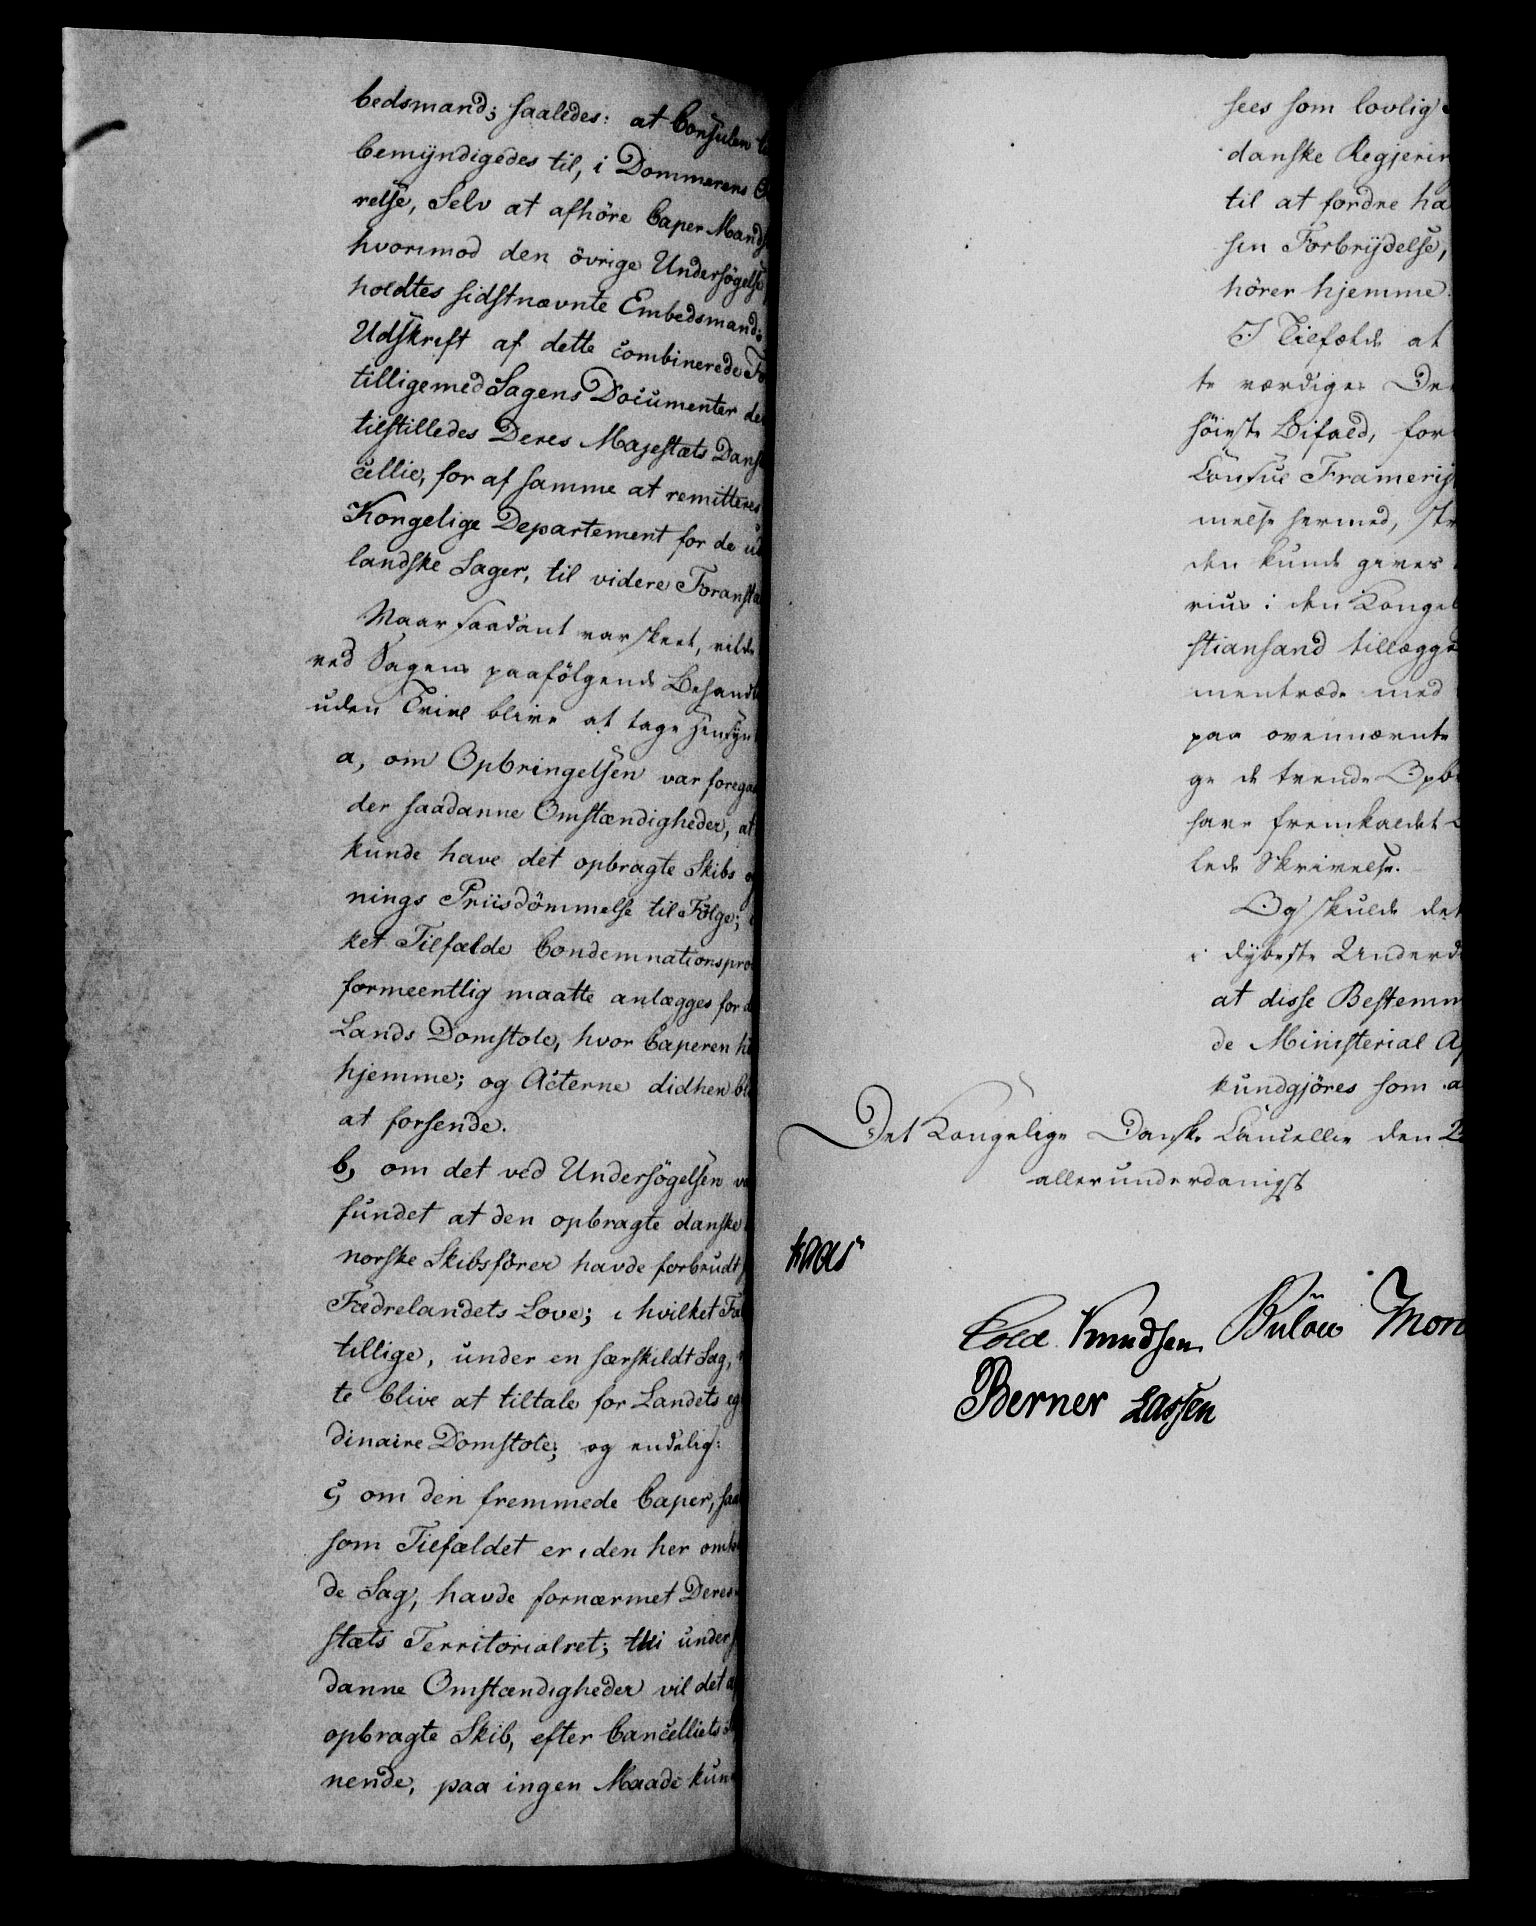 bedsmand; saaledes: at Consulen
bemyndigedes til, i Dommerens
relse, Selv at afhöre Caper Mands
hvorimod den övrige Undersögelse
holdtes sidstnævnte Embedsmand;
Udskrift af dette combinerede
tilligemed Sagens Documenter
tilstilledes Deres Majestæts Dans
cellie, for af samme at remitteres
Kongelige Departement for de
landske Sager, til videre Foransta
Naar saadant var skeet, vilde
ved Sagens paafölgende Behand
uden Tvivl blive at tage Hensyn
a, om Opbringelsen var forega
der saadanne Omstændigheder, at
kunde have det opbragte Skibs
nings Priisdömmelse til Fölge;
ket Tilfælde Condemnationspro
formeentlig maatte anlægges for
Lands Domstole, hvor Caperen
hjemme; og Acterne didhen
at forsende.
b, om det ved Undersögelsen
fundet at den opbragte danske
norske Skibsförer havde forbrudt
Fædrelandets Love; i hvilket
tillige, under en særskildt Sag,
te blive at tiltale for Landets
dinaire Domstole; og endelig:
c, om den fremmede Caper,
som Tilfældet er i den her
de Sag, havde fornærmet Deres
stæts Territorialret; thi under
danne Omstændigheder vil det
opbragte Skib, efter Cancelliets
nende, paa ingen Maade
sees som lovlig
danske Regjerin
til at fordre
sin Forbrydelse,
hörer hjemme.
I Tilfælde at
te værdiges
höieste Bifald, for
Consul Framery
melse hermed,
den kunde gives
rius i den Kongel
stiansand tillægges
mentræde med
paa ovennævnte
ge de trende Opb
have fremkaldet
lede Skrivelse.
Og skulde det
i dybeste Underd
at disse Bestemm
de Ministerial
kundgjöres som
Det Kongelige Danske Cancellie den
allerunderdanigst
Kaas
Cold Knudsen Bülow
Berner Lassen